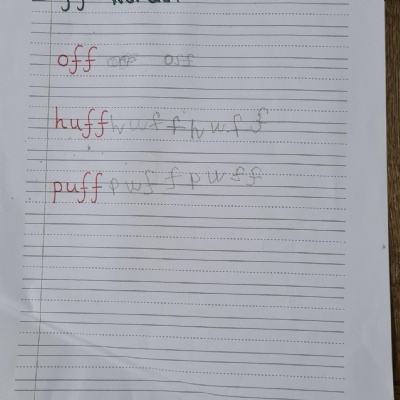 off off
huff huff huff
puff puff puff